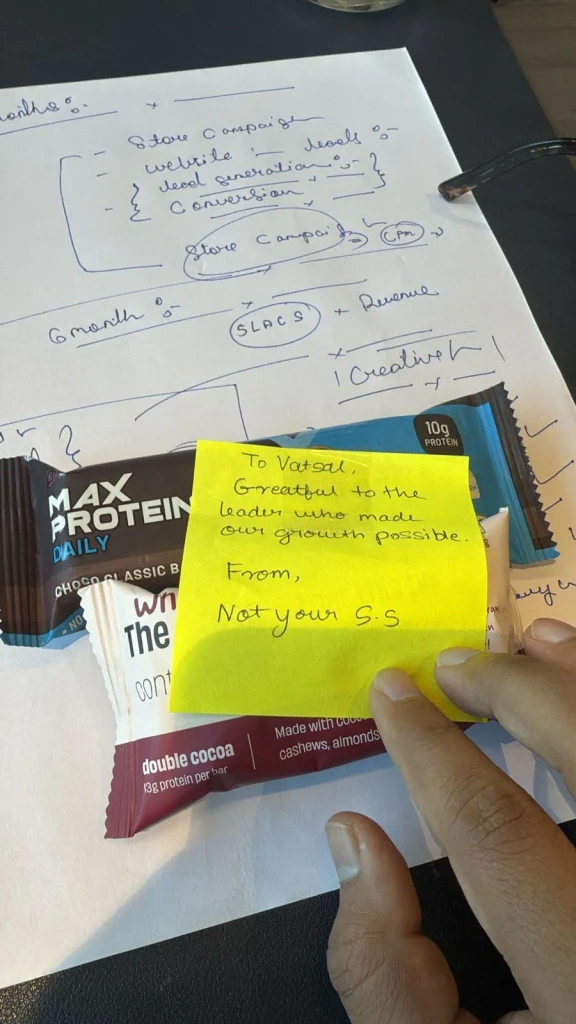 Store Campaign
website :- leads :-
lead generation :-
Conversion
Store Campaign
CPM
6 month :-
SLACS + Revenue
Creative
10g
PROTEIN
MAX
PROTEIN
DAILY
CHOCO CLASSIC B
To Vatsal,
Greatful to the
leader who made
our growth possible.
From,
Not your S.S
The
cont
double cocoa
13g protein per bar
Made with coco
cashews, almonds